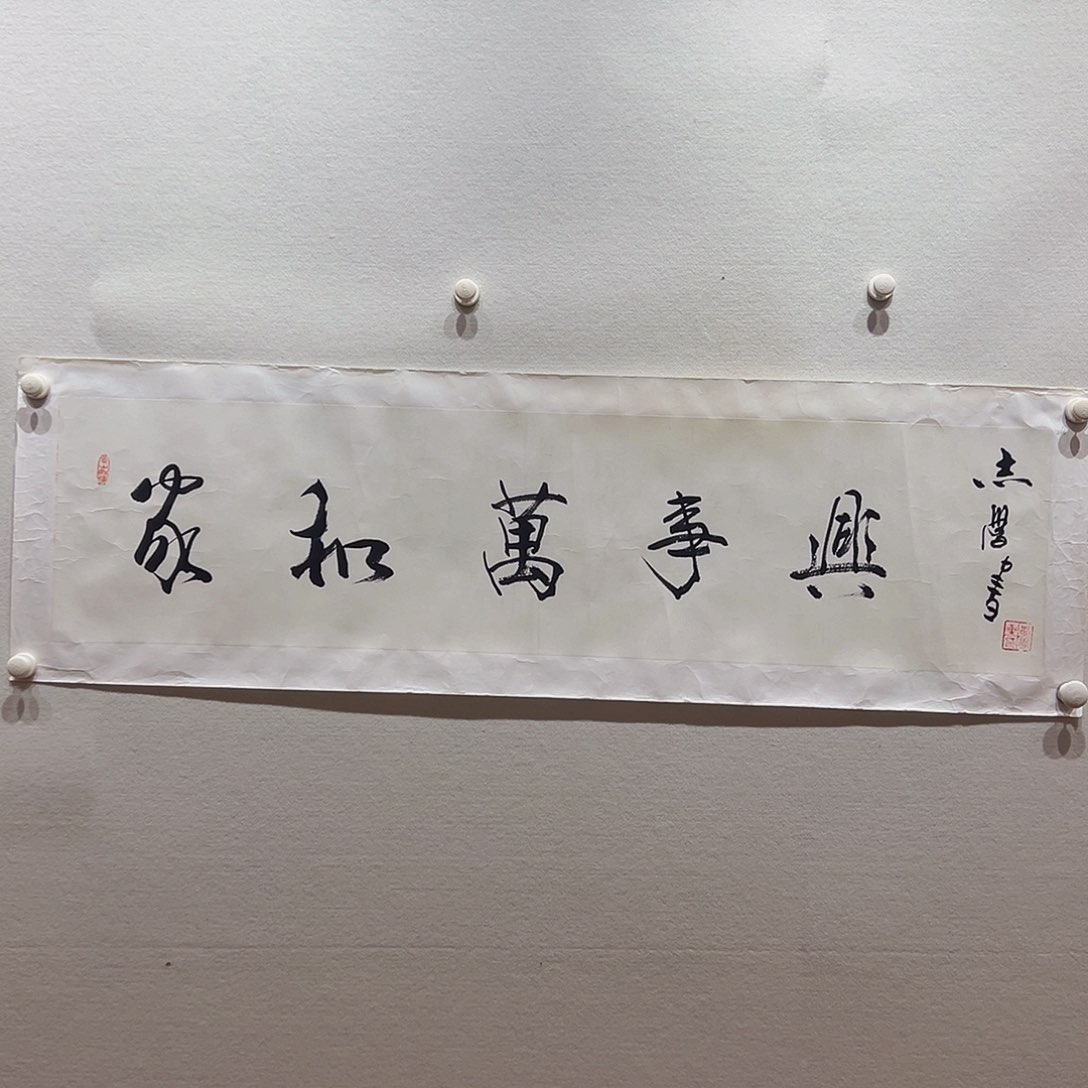 家和萬事興
志學書